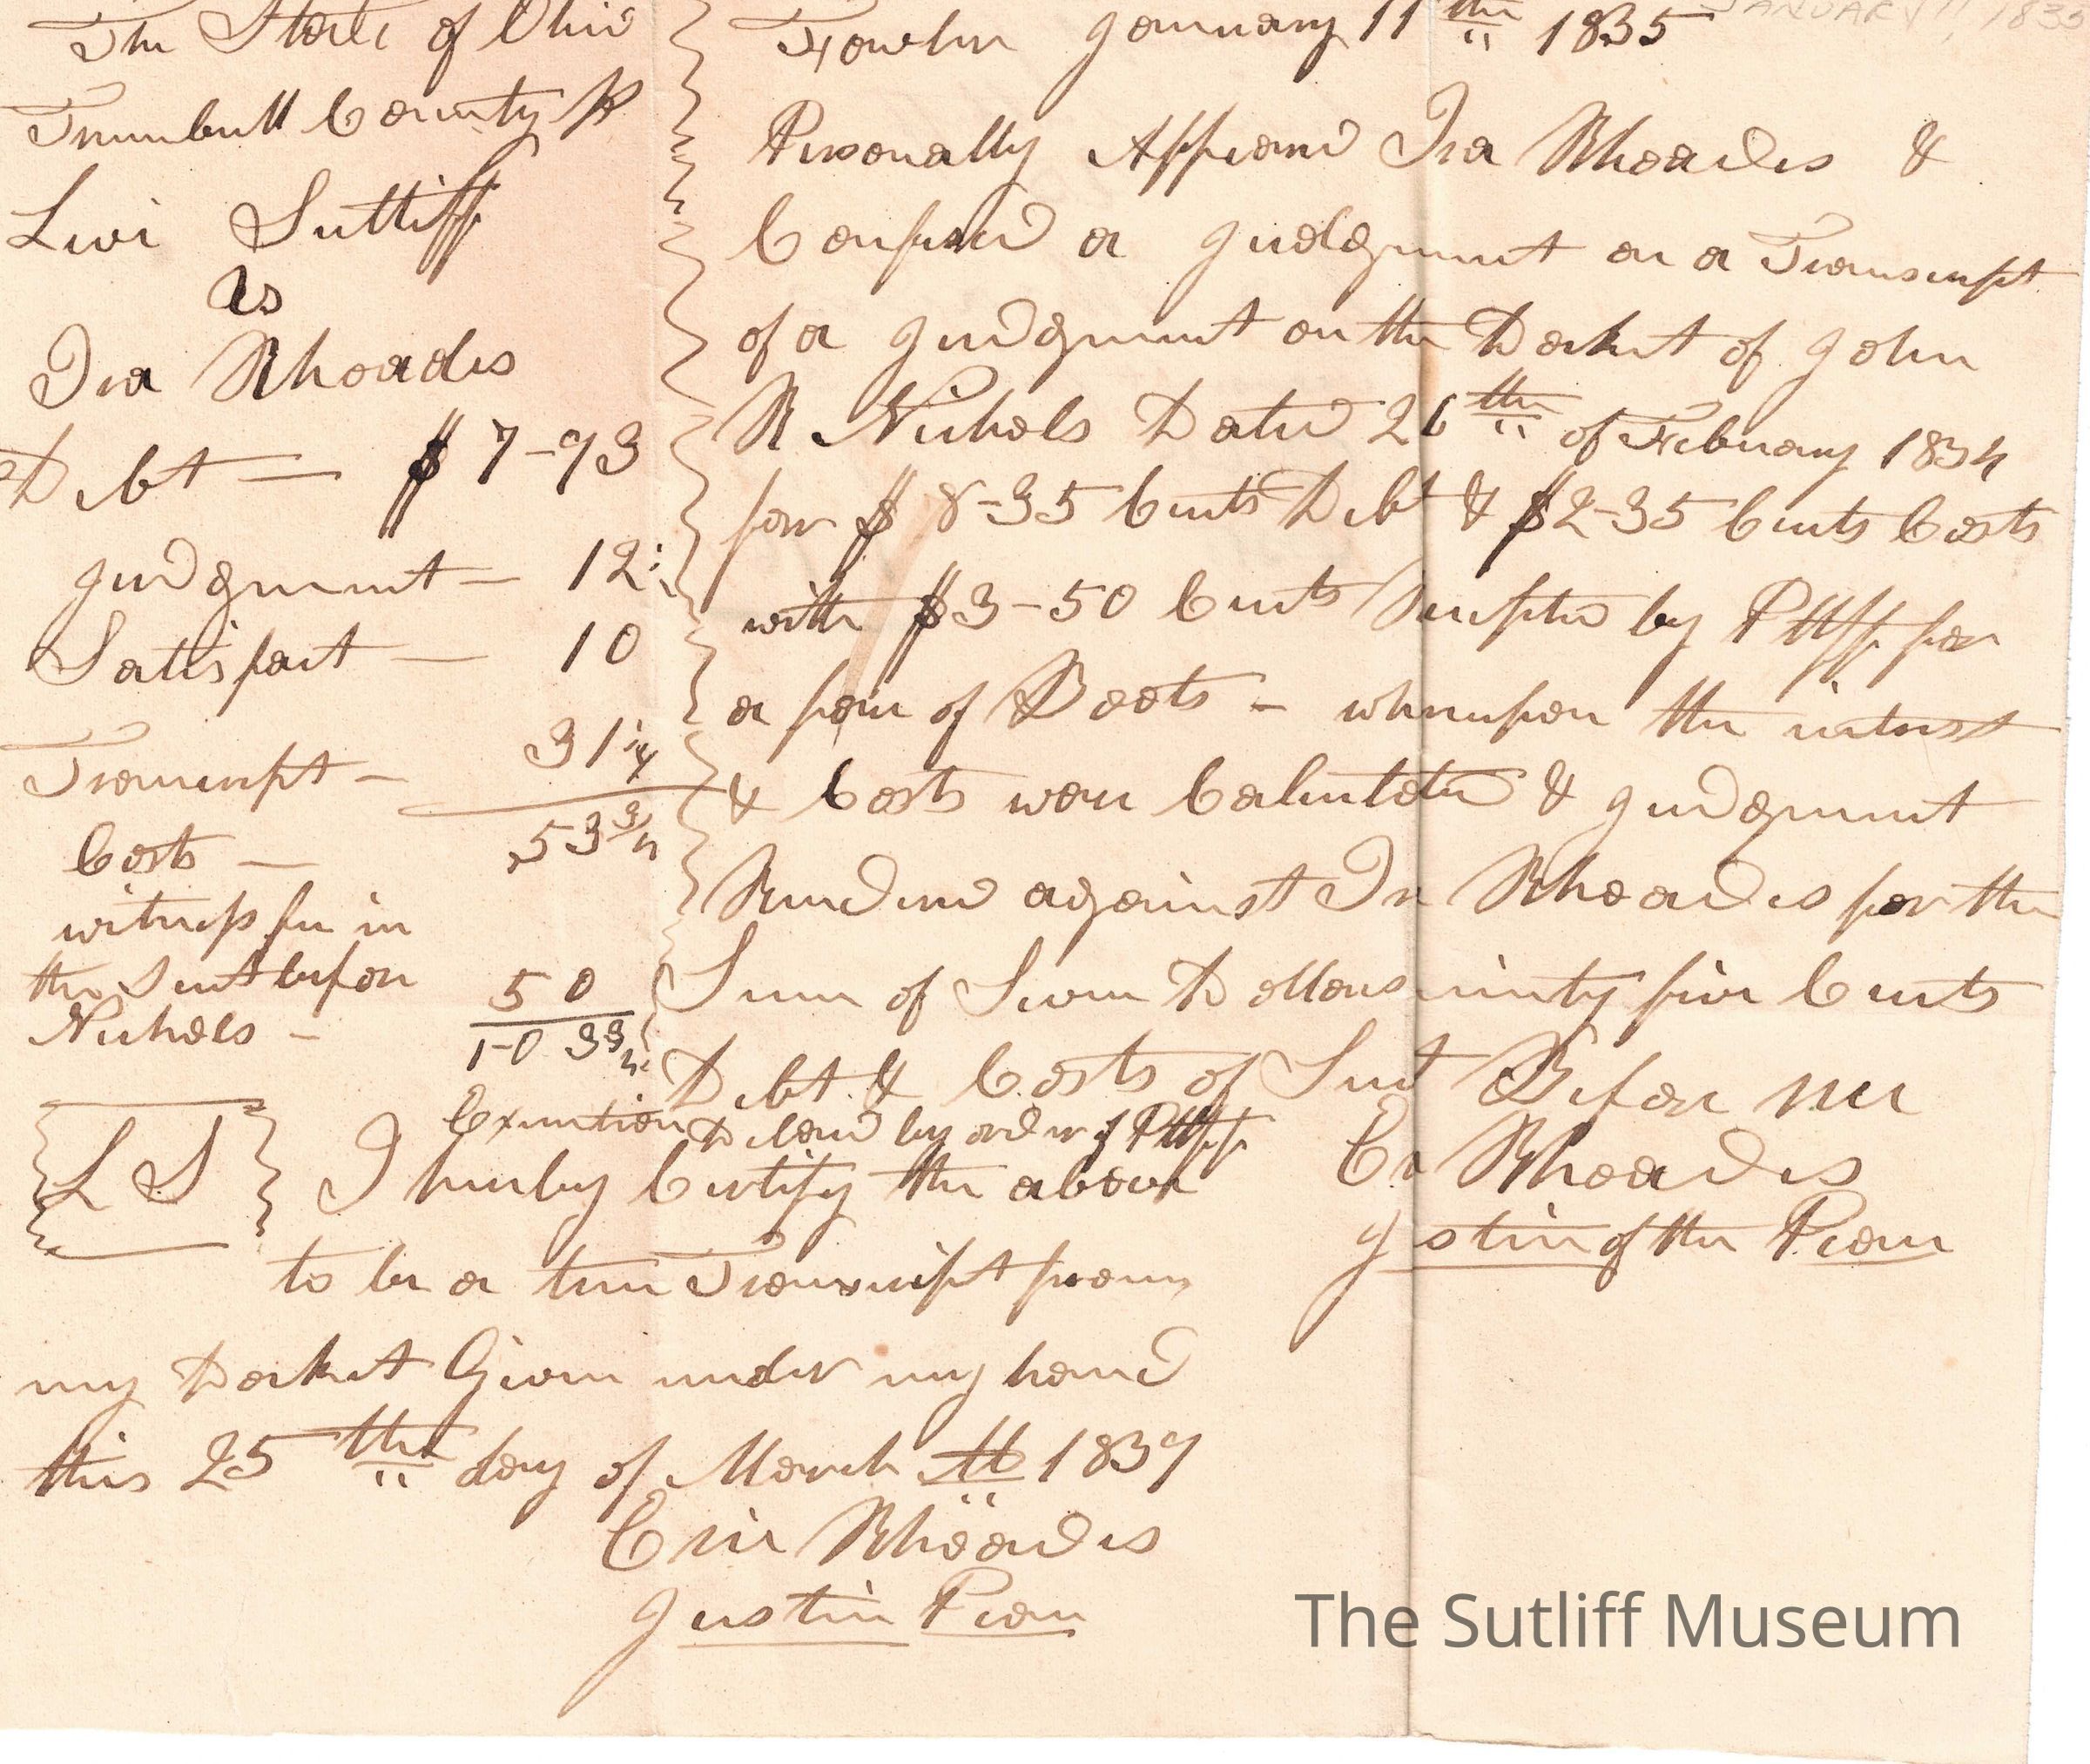 The State of Ohio
Trumbull County ss
Levi Sutliff
vs
Ira Rhoades
Debt — $ 7-93
Judgment — 12½
Satisfact — 10
Transcript — 31¼
.53¾
Costs —
witness fee in
the Suit before
Nichols — 50
1-0 3¾
JANUARY 11, 1835
Fowler January 11th 1835
Personally Appeard Ira Rhoades &
Confessed a Judgment on a Transcript
of a Judgment on the Docket of John
R Nichols Dated 26th of February 1834
for $ 8-35 Cents Debt & $2-35 Cents Costs
with $3-50 Cents Receipted by Pltff for
a pair of Boots - whereupon the interest
& Costs were Calculated & Judgment
Rendered against Ira Rhoades for the
Sum of Seven Dollars ninty five Cents
Debt & Costs of Suit Before me
Er Rhoades
Justice of the Peace
Execution Delaid by order of Pltff
L S
I hereby Certify the above
to be a true Transcript from
my Docket Given under my hand
this 25th day of March AD 1837
Erie Rhoades
Justice Peace
The Sutliff Museum